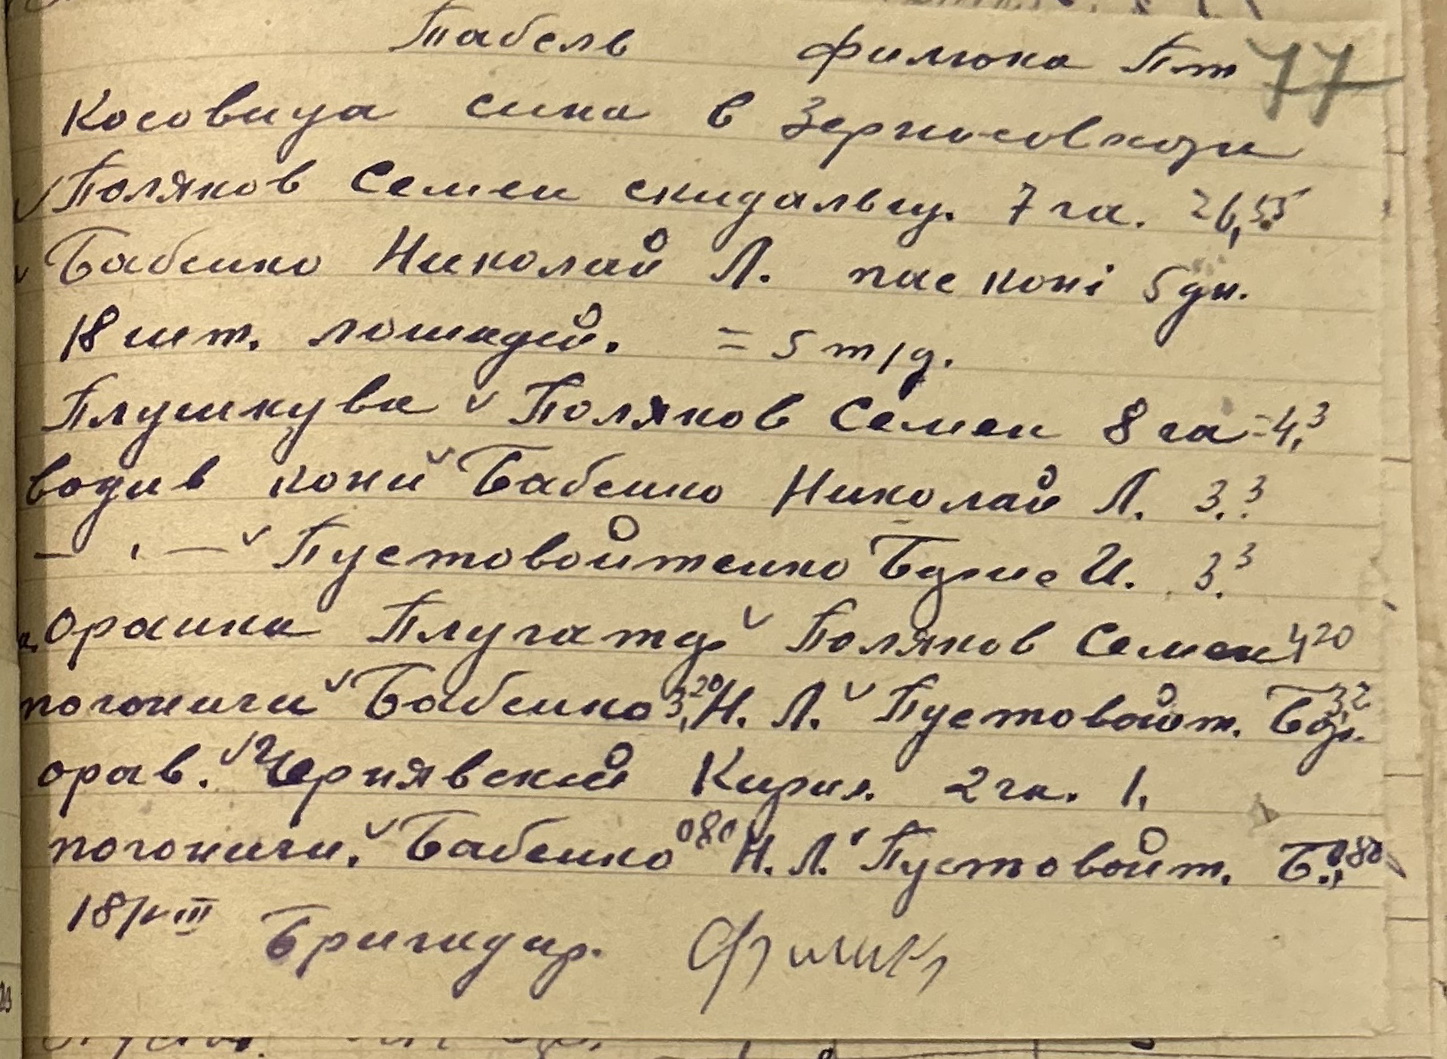 Табель Филюка Пт 77
Косовиця сина в Зерносовхози
Поляков Семен скидальщ. 7 га. 26,55
Бабенко Николай Л. пас коні 5 дн.
18 шт. лошадей. = 5 т/д.
Плушкува Поляков Семен 8 га = 4,3
водив коний Бабенко Николай Л. 3.3
— . — Пустовойтенко Бдние И. 3.3
Оранка Поляков Семен 4,20
погоничи Бабенко 3,20 Н. Л. Пустовойт. 3,2
орав. Чернявский Кирил. 2 га. 1,
погоничи. Бабенко 080 Н. Л. Пустовойт. Б., 080
18/VIII Бригадир.